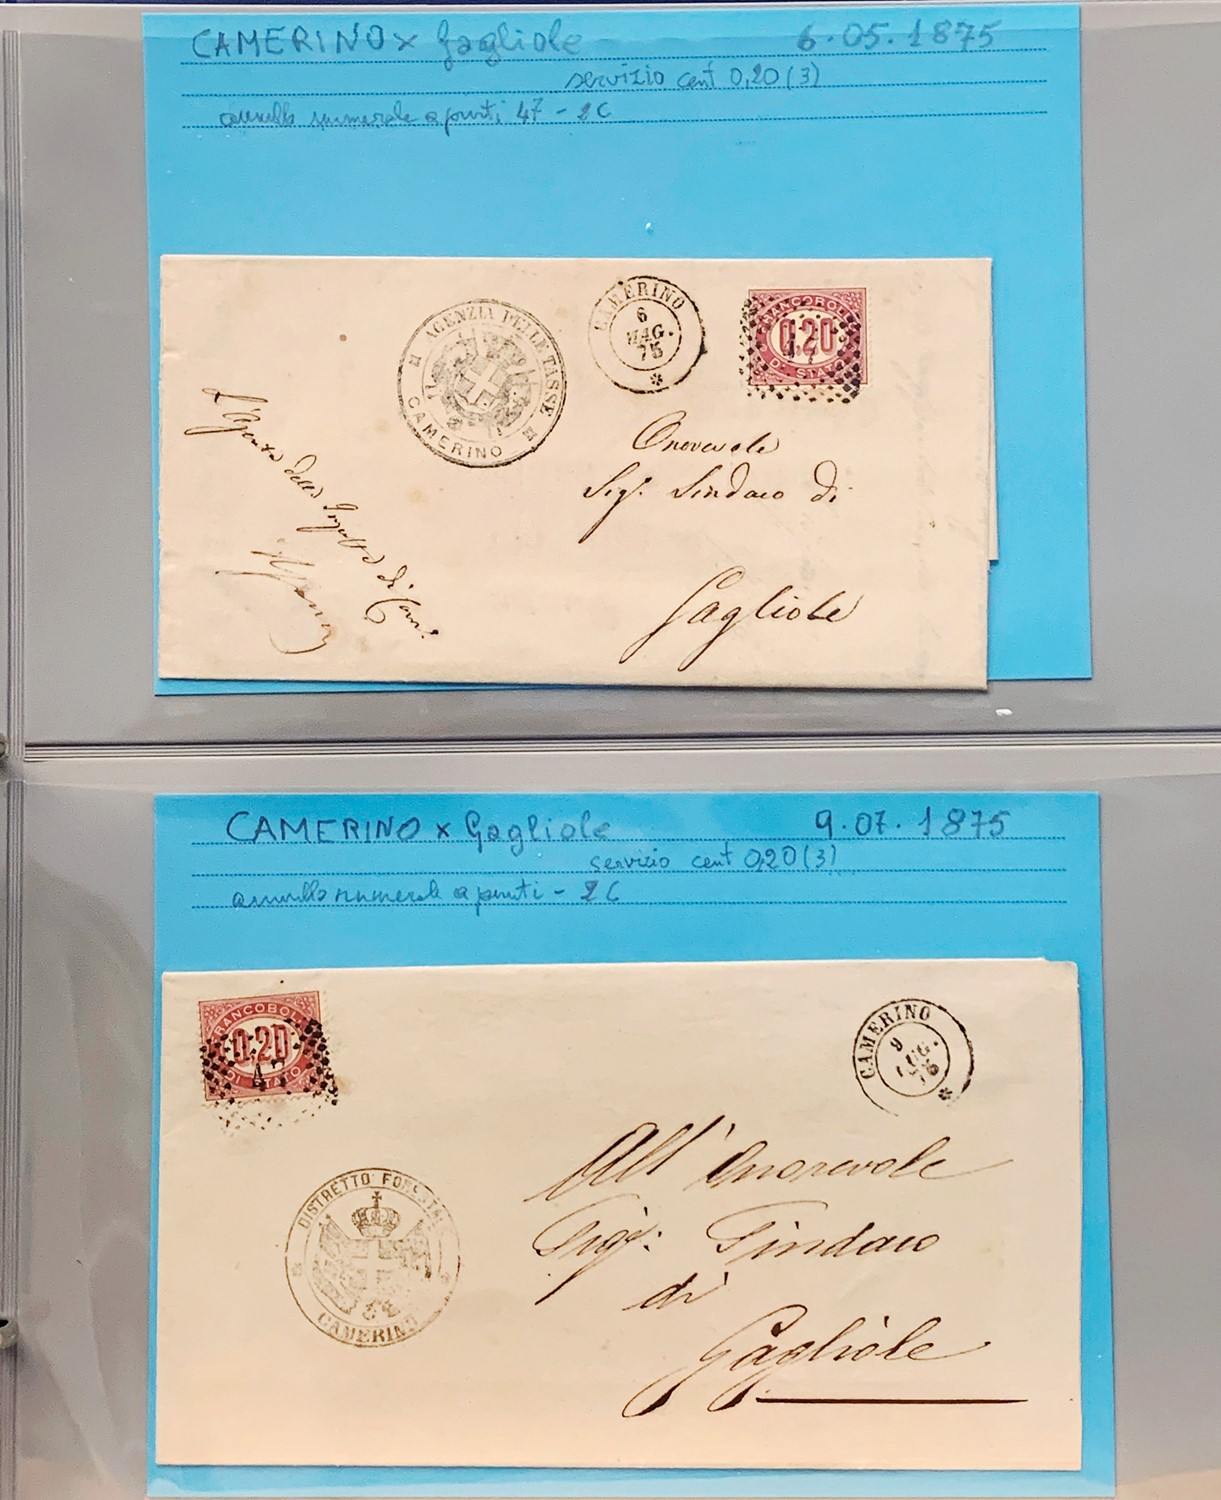 CAMERINO x Gagliole 6.05.1875
servizio cent 0,20 (3)
annullo numerale a punti 47 - 2C
AGENZIA DELLE TASSE
CAMERINO
CAMERINO
6
MAG.
75
FRANCOBO
0.20
47
DI STATO
Onorevole
Sigr. Sindaco di
Gagliole
L'Agente delle Imposte di Cam
CAMERINO x Gagliole 9.07.1875
servizio cent 0,20 (3)
annullo numerale a punti - 2C
FRANCOBOL
0.20
47
DI STATO
CAMERINO
9
LUG.
DISTRETTO FORESTAL
CAMERINO
All' Onorevole
Sigr: Sindaco
di
Gagliole